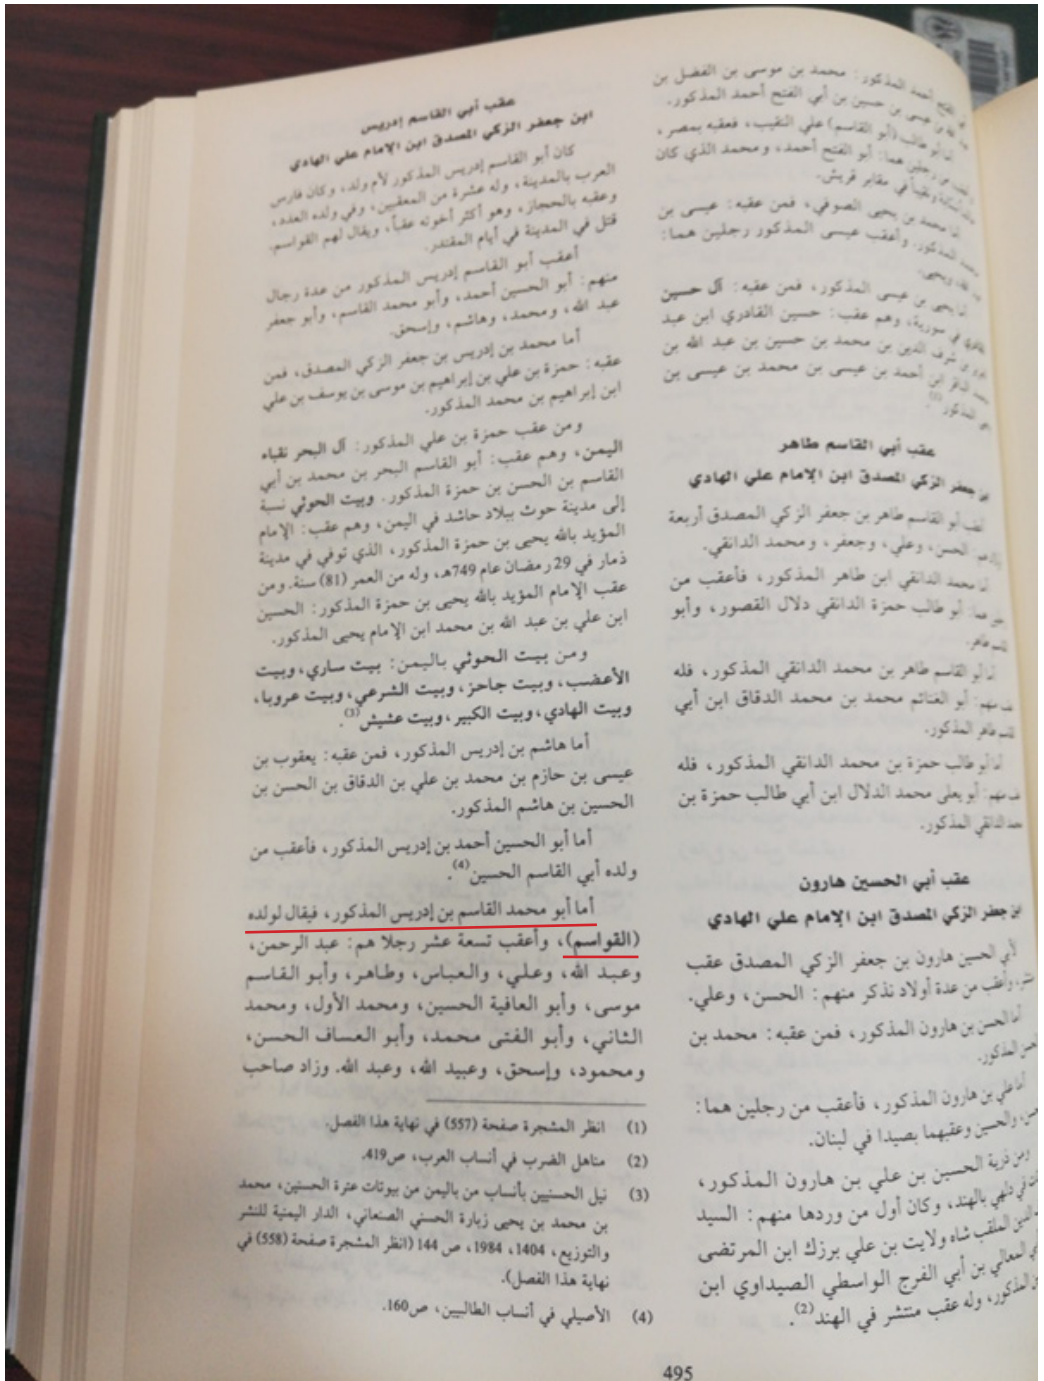 أبي الفتح أحمد المذكور: محمد بن موسى بن الفضل بن
بن عيسى بن حسين بن أبي الفتح أحمد المذكور.
أما أبو طالب (أبو القاسم) علي النقيب، فعقبه بمصر،
من رجلين هما: أبو الفتح أحمد، ومحمد الذي كان
نقيباً في مقابر قريش.
أما محمد بن يحيى الصوفي، فمن عقبه: عيسى بن
محمد المذكور. وأعقب عيسى المذكور رجلين هما:
ويحيى.
أما يحيى بن عيسى المذكور، فمن عقبه: آل حسين
القادري في سورية، وهم عقب: حسين القادري ابن عبد
بن شرف الدين بن محمد بن حسين بن عبد الله بن
محمد الباقر ابن أحمد بن عيسى بن محمد بن عيسى بن
المذكور(1).
عقب أبي القاسم طاهر
بن جعفر الزكي المصدق ابن الإمام علي الهادي
أعقب أبو القاسم طاهر بن جعفر الزكي المصدق أربعة
الحسن، وعلي، وجعفر، ومحمد الدانقي.
أما محمد الدانقي ابن طاهر المذكور، فأعقب من
هما: أبو طالب حمزة الدانقي دلال القصور، وأبو
القاسم طاهر.
أما أبو القاسم طاهر بن محمد الدانقي المذكور، فله
عقب منهم: أبو الغنائم محمد بن محمد الدقاق ابن أبي
القاسم طاهر المذكور.
أما أبو طالب حمزة بن محمد الدانقي المذكور، فله
عقب منهم: أبو يعلى محمد الدلال ابن أبي طالب حمزة بن
محمد الدانقي المذكور.
عقب أبي الحسين هارون
ابن جعفر الزكي المصدق ابن الإمام علي الهادي
لأبي الحسين هارون بن جعفر الزكي المصدق عقب
منتشر، وأعقب من عدة أولاد نذكر منهم: الحسن، وعلي.
أما الحسن بن هارون المذكور، فمن عقبه: محمد بن
الحسن المذكور.
أما علي بن هارون المذكور، فأعقب من رجلين هما:
الحسن، والحسين وعقبهما بصيدا في لبنان.
ومن ذرية الحسين بن علي بن هارون المذكور،
في دلهي بالهند، وكان أول من وردها منهم: السيد
الملقب شاه ولايت بن علي برزك ابن المرتضى
أبي المعالي بن أبي الفرج الواسطي الصيداوي ابن
المذكور، وله عقب منتشر في الهند(2).
عقب أبي القاسم إدريس
ابن جعفر الزكي المصدق ابن الإمام علي الهادي
كان أبو القاسم إدريس المذكور لأم ولد، وكان فارس
العرب بالمدينة، وله عشرة من المعقبين، وفي ولده العدد،
وعقبه بالحجاز، وهو أكثر أخوته عقباً، ويقال لهم القواسم.
قتل في المدينة في أيام المقتدر.
أعقب أبو القاسم إدريس المذكور من عدة رجال
منهم: أبو الحسين أحمد، وأبو محمد القاسم، وأبو جعفر
عبد الله، ومحمد، وهاشم، وإسحق.
أما محمد بن إدريس بن جعفر الزكي المصدق، فمن
عقبه: حمزة بن علي بن إبراهيم بن موسى بن يوسف بن علي
ابن إبراهيم بن محمد المذكور.
ومن عقب حمزة بن علي المذكور: آل البحر نقباء
اليمن، وهم عقب: أبو القاسم البحر بن محمد بن أبي
القاسم بن الحسن بن حمزة المذكور. وبيت الحوثي نسبة
إلى مدينة حوث ببلاد حاشد في اليمن، وهم عقب: الإمام
المؤيد بالله يحيى بن حمزة المذكور، الذي توفي في مدينة
ذمار في 29 رمضان عام 749هـ، وله من العمر (81) سنة. ومن
عقب الإمام المؤيد بالله يحيى بن حمزة المذكور: الحسين
ابن علي بن عبد الله بن محمد ابن الإمام يحيى المذكور.
ومن بيت الحوثي باليمن: بيت ساري، وبيت
الأعضب، وبيت جاحز، وبيت الشرعي، وبيت عروبا،
وبيت الهادي، وبيت الكبير، وبيت عشيش(3).
أما هاشم بن إدريس المذكور، فمن عقبه: يعقوب بن
عيسى بن حازم بن محمد بن علي بن الدقاق بن الحسن بن
الحسين بن هاشم المذكور.
أما أبو الحسين أحمد بن إدريس المذكور، فأعقب من
ولده أبي القاسم الحسين(4).
أما أبو محمد القاسم بن إدريس المذكور، فيقال لولده
(القواسم)، وأعقب تسعة عشر رجلا هم: عبد الرحمن،
وعبد الله، وعلي، والعباس، وطاهر، وأبو القاسم
موسى، وأبو العافية الحسين، ومحمد الأول، ومحمد
الثاني، وأبو الفتى محمد، وأبو العساف الحسن،
ومحمود، وإسحق، وعبيد الله، وعبد الله. وزاد صاحب
(1) انظر المشجرة صفحة (557) في نهاية هذا الفصل.
(2) مناهل الضرب في أنساب العرب، ص419.
(3) نيل الحسنيين بأنساب من باليمن من بيوتات عترة الحسنين، محمد
بن محمد بن يحيى زبارة الحسني الصنعاني، الدار اليمنية للنشر
والتوزيع، 1404، 1984، ص 144 (انظر المشجرة صفحة (558) في
نهاية هذا الفصل).
(4) الأصيلي في أنساب الطالبيين، ص160.
495